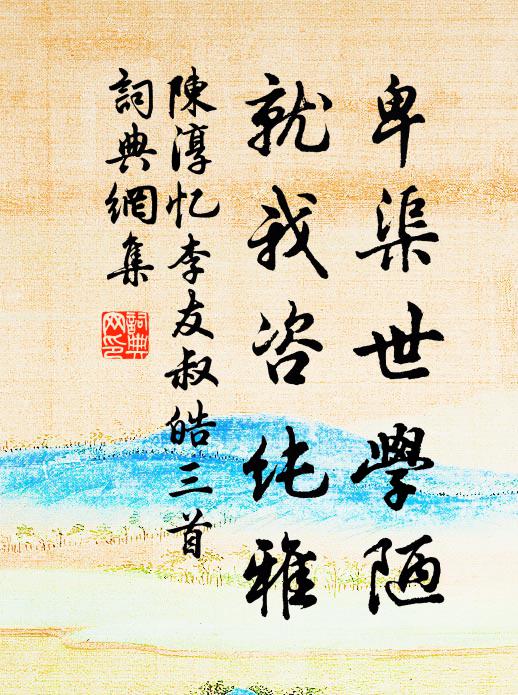 卑渠世學陋
就我咨纯雅
陳淳忆李友叔皓三首
詞典網集
詞典網印